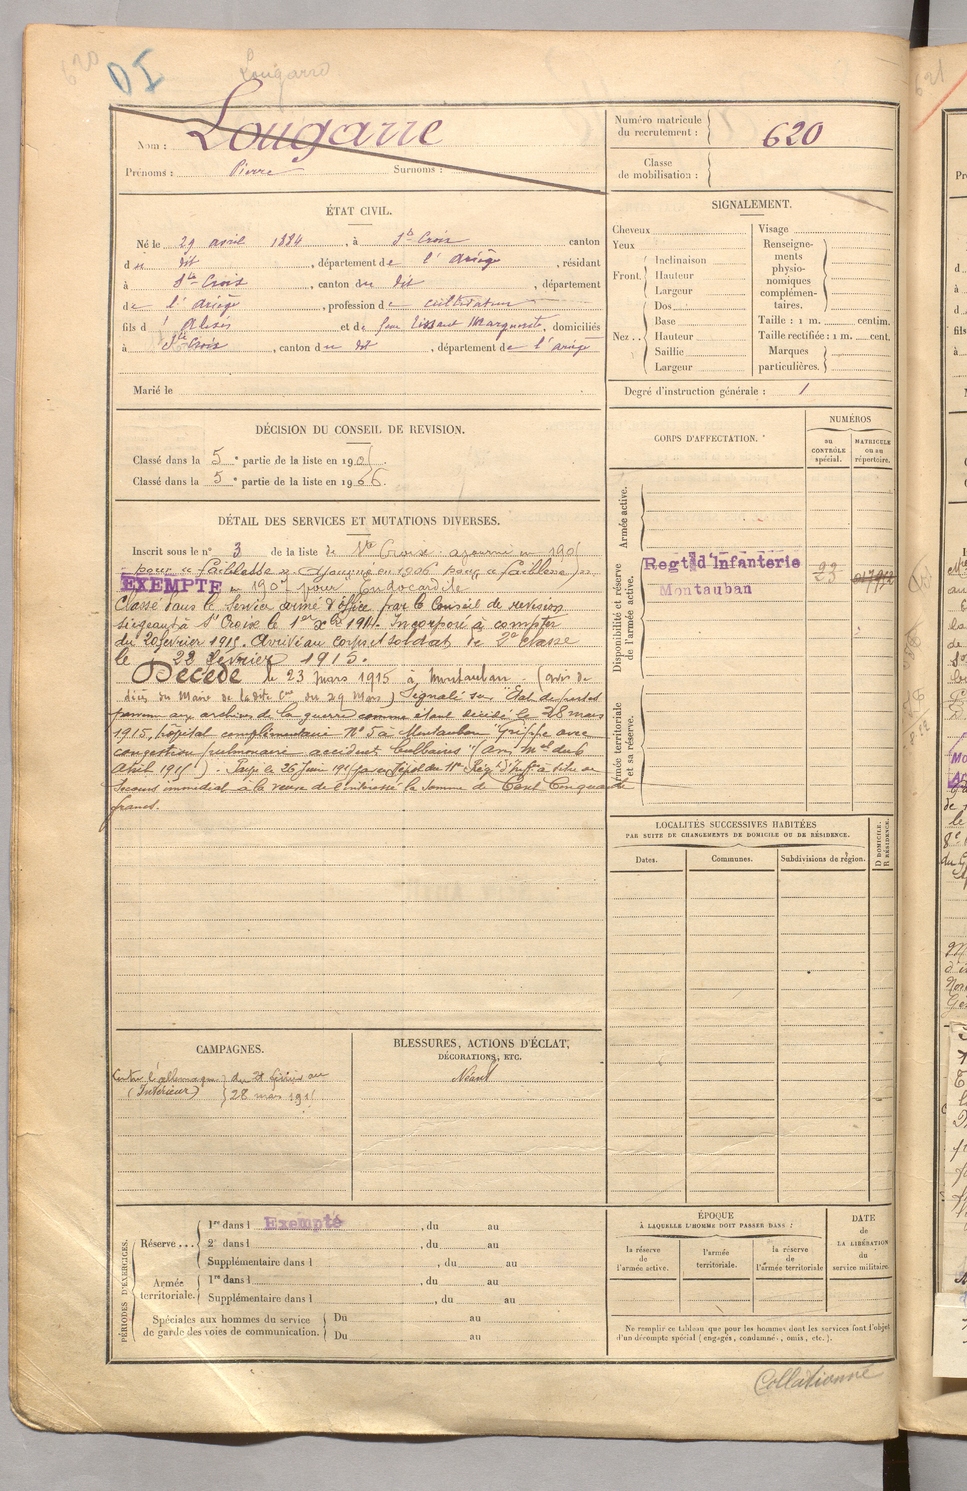 620
Lougarre
Nom : Lougarre
Prénoms : Pierre Surnoms :
Numéro matricule du recrutement : 620
Classe de mobilisation :
ÉTAT CIVIL.
Né le 29 avril 1884, à Ste Croix canton
du dit, département de l'Ariège, résidant
à Ste Croix, canton du dit, département
de l'Ariège, profession de cultivateur
fils d'Alexis et de Marguerite, domiciliés
à Ste Croix, canton du dit, département de l'Ariège
Marié le
DÉCISION DU CONSEIL DE REVISION.
Classé dans la 5e partie de la liste en 1905.
Classé dans la 5e partie de la liste en 1906.
DÉTAIL DES SERVICES ET MUTATIONS DIVERSES.
Inscrit sous le n° 3 de la liste de Ste Croix : ajourné en 1905
pour faiblesse Ajourné en 1906 pour faiblesse
EXEMPTÉ en 1907 pour Endocardite
Classé dans le Service armé d'office par le Conseil de revision
siégeant à St Croix le 1er Xbre 1914. Incorporé à compter
du 20 février 1915. Arrivé au corps et soldat de 2e classe
le 22 février 1915.
Décédé le 23 mars 1915 à Montauban (avis de
décès du Maire de ladite Cne du 29 mars) Signalé sur "État de pertes
parvenu aux archives de la guerre comme étant décédé le 28 mars
1915, hôpital complémentaire N° 5 à Montauban "Grippe avec
congestion pulmonaire accident bulbaires" (avis mel du 6
Avril 1915). Payé le 26 Juin 1915 par dépôt du 11e Rég. d'Inf. à titre de
secours immédiat à la veuve de l'intéressé la somme de Cent Cinquante
francs.
SIGNALEMENT.
Cheveux
Yeux
Front. Inclinaison
Hauteur
Largeur
Nez.. Dos
Base
Hauteur
Saillie
Largeur
Visage
Renseignements physionomiques complémentaires.
Taille : 1 m. centim.
Taille rectifiée : 1 m. cent.
Marques particulières.
Degré d'instruction générale : 1
CORPS D'AFFECTATION.
NUMÉROS
au CONTRÔLE spécial.
MATRICULE ou au répertoire.
Armée active.
Disponibilité et réserve de l'armée active.
Regt d'Infanterie
Montauban
23
Armée territoriale et sa réserve.
LOCALITÉS SUCCESSIVES HABITÉES
PAR SUITE DE CHANGEMENTS DE DOMICILE OU DE RÉSIDENCE.
Dates.
Communes.
Subdivisions de région.
D DOMICILE. R RÉSIDENCE.
CAMPAGNES.
Contre l'Allemagne du février au
(Intérieur) 28 mars 1915
BLESSURES, ACTIONS D'ÉCLAT,
DÉCORATIONS, ETC.
Néant
PÉRIODES D'EXERCICES.
Réserve... 1re dans l Exempté, du au
2e dans l , du au
Supplémentaire dans l , du au
Armée territoriale. 1re dans l , du au
Supplémentaire dans l , du au
Spéciales aux hommes du service de garde des voies de communication.
Du au
Du au
ÉPOQUE
À LAQUELLE L'HOMME DOIT PASSER DANS :
la réserve de l'armée active.
l'armée territoriale.
la réserve de l'armée territoriale
DATE de LA LIBÉRATION du service militaire.
Ne remplir ce tableau que pour les hommes dont les services font l'objet
d'un décompte spécial (engagés, condamnés, omis, etc.).
Collationné
621